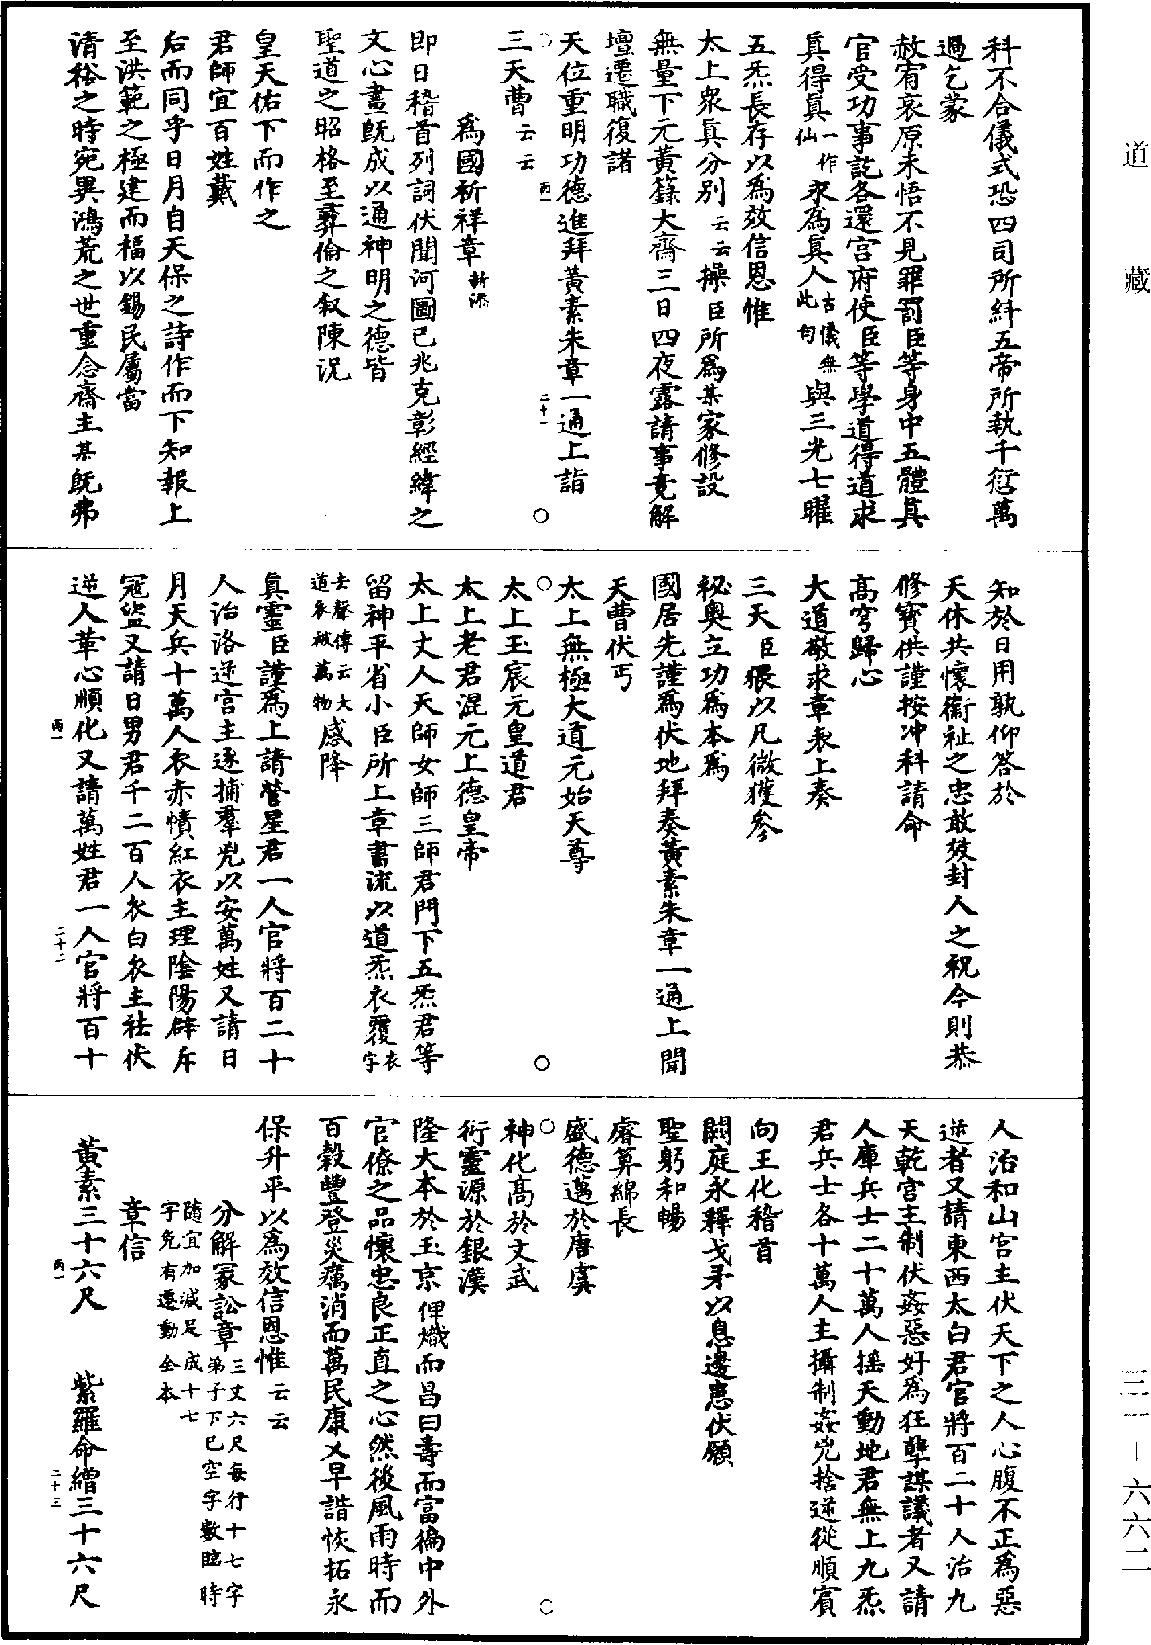 道藏
科不合儀式恐四司所糾五帝所執千愆萬
過乞蒙
赦宥哀原未悟不見罪罰臣等身中五體真
官受功事訖各還宮府使臣等學道得道求
真得真一作仙永為真人古儀無此句與三光七曜
五炁長存以為效信恩惟
太上衆真分別云云操臣所為某家修設
無量下元黃籙大齋三日四夜露請事竟解
壇遷職復諸
天位重明功德進拜黃素朱章一通上詣
丙一
二十一
三天曹云云
為國祈祥章新添
即日稽首列詞伏聞河圖已兆克彰經緯之
文心畫旣成以通神明之德皆
聖道之昭格至彝倫之叙陳況
皇天佑下而作之
君師宜百姓戴
后而同乎日月自天保之詩作而下知報上
至洪範之極建而福以錫民屬當
清裕之時宛異鴻荒之世重念齋主某旣弗
知於日用孰仰答於
天休共懷衞社之忠敢效封人之祝今則恭
修寶供謹按冲科請命
高穹歸心
大道敬求章表上奏
三天臣猥以凡微獲參
祕奧立功為本為
國居先謹為伏地拜奏黃素朱章一通上聞
天曹伏丐
太上無極大道元始天尊
太上玉宸元皇道君
太上老君混元上德皇帝
太上丈人天師女師三師君門下五炁君等
留神平省小臣所上章書流以道炁衣覆衣字
去聲傳云大道衣被萬物感降
真靈臣謹為上請營星君一人官將百二十
人治洛逆宮主逐捕羣兇以安萬姓又請日
月天兵十萬人衣赤幘紅衣主理陰陽辟斥
冠盜又請日男君千二百人衣白衣主祛伏
逆人革心順化又請萬姓君一人官將百十
丙一
二十二
人治和山宮主伏天下之人心腹不正為惡
逆者又請東西太白君官將百二十人治九
天乾宮主制伏姦惡好為狂孽謀議者又請
人庫兵士二十萬人搖天動地君無上九炁
君兵士各十萬人主攝制姦兇捨逆從順賓
向王化稽首
闕庭永釋戈矛以息邊患伏願
聖躬和暢
睿算綿長
盛德邁於唐虞
神化高於文武
衍靈源於銀漢
隆大本於玉京俾熾而昌曰壽而富徧中外
官僚之品懷忠良正直之心然後風雨時而
百穀豐登災癘消而萬民康乂早諧恢拓永
保升平以為效信恩惟云云
分解冢訟章三丈六尺每行十七字弟子下已空字數臨時
隨宜加減足成十七字免有遷動全本
章信
黃素三十六尺　紫羅命繒三十六尺
丙一
二十三
三一—六六二